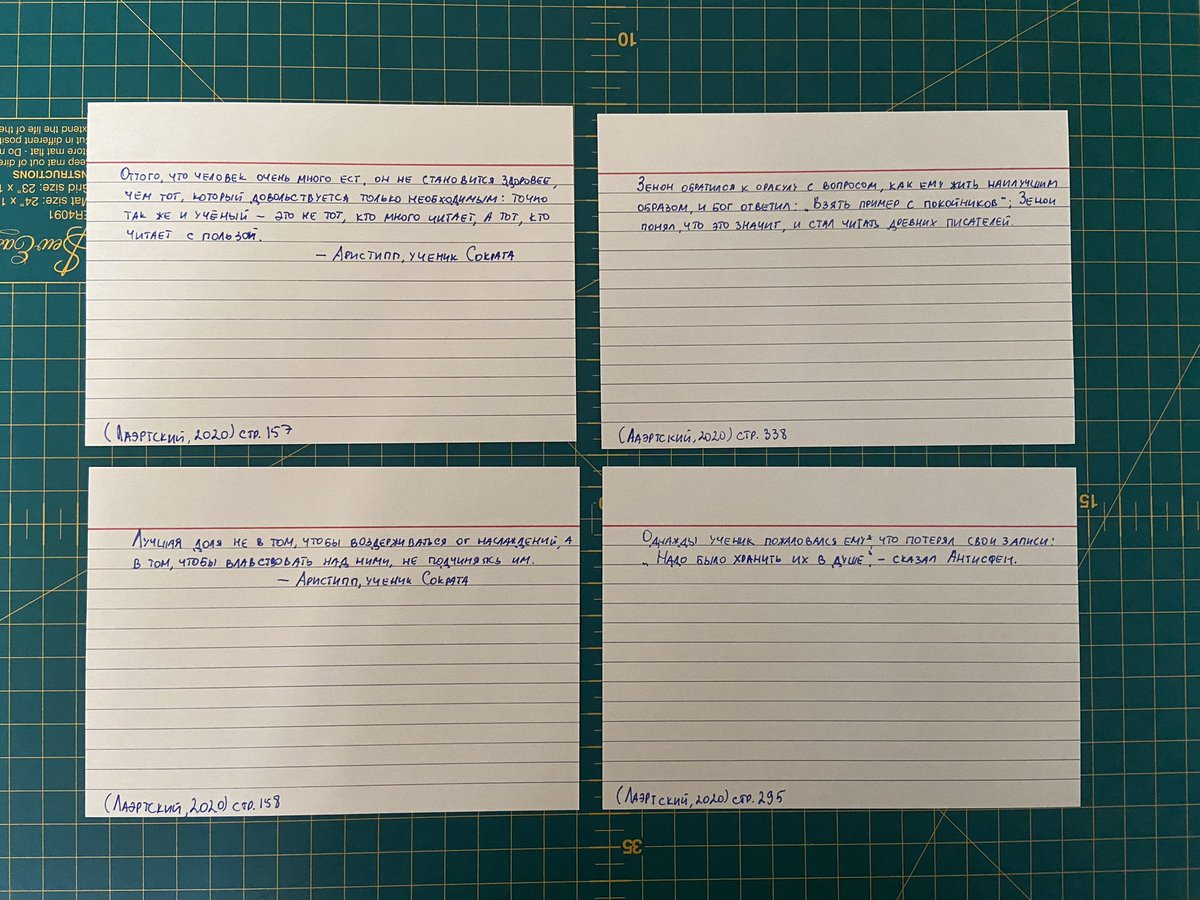 10
Оттого, что человек очень много ест, он не становится здоровее,
чем тот, который довольствуется только необходимым: точно
так же и учёный – это не тот, кто много читает, а тот, кто
читает с пользой.
– Аристипп, ученик Сократа
(Лаэртский, 2020) стр. 157
Зенон обратился к оракулу с вопросом, как ему жить наилучшим
образом, и бог ответил: „Взять пример с покойников“; Зенон
понял, что это значит, и стал читать древних писателей.
(Лаэртский, 2020) стр. 338
Лучшая доля не в том, чтобы воздерживаться от наслаждений, а
в том, чтобы влавствовать над ними, не подчиняясь им.
– Аристипп, ученик Сократа
(Лаэртский, 2020) стр. 158
Однажды ученик пожаловался ему, что потерял свои записи:
„Надо было хранить их в душе“, – сказал Антисфен.
(Лаэртский, 2020) стр. 295
extend the life of the
cut in different
store mat flat - Do
keep mat out of direct
INSTRUCTIONS
Grid size: 23" x
Mat size: 24" x
ER4091
Sew
15
35